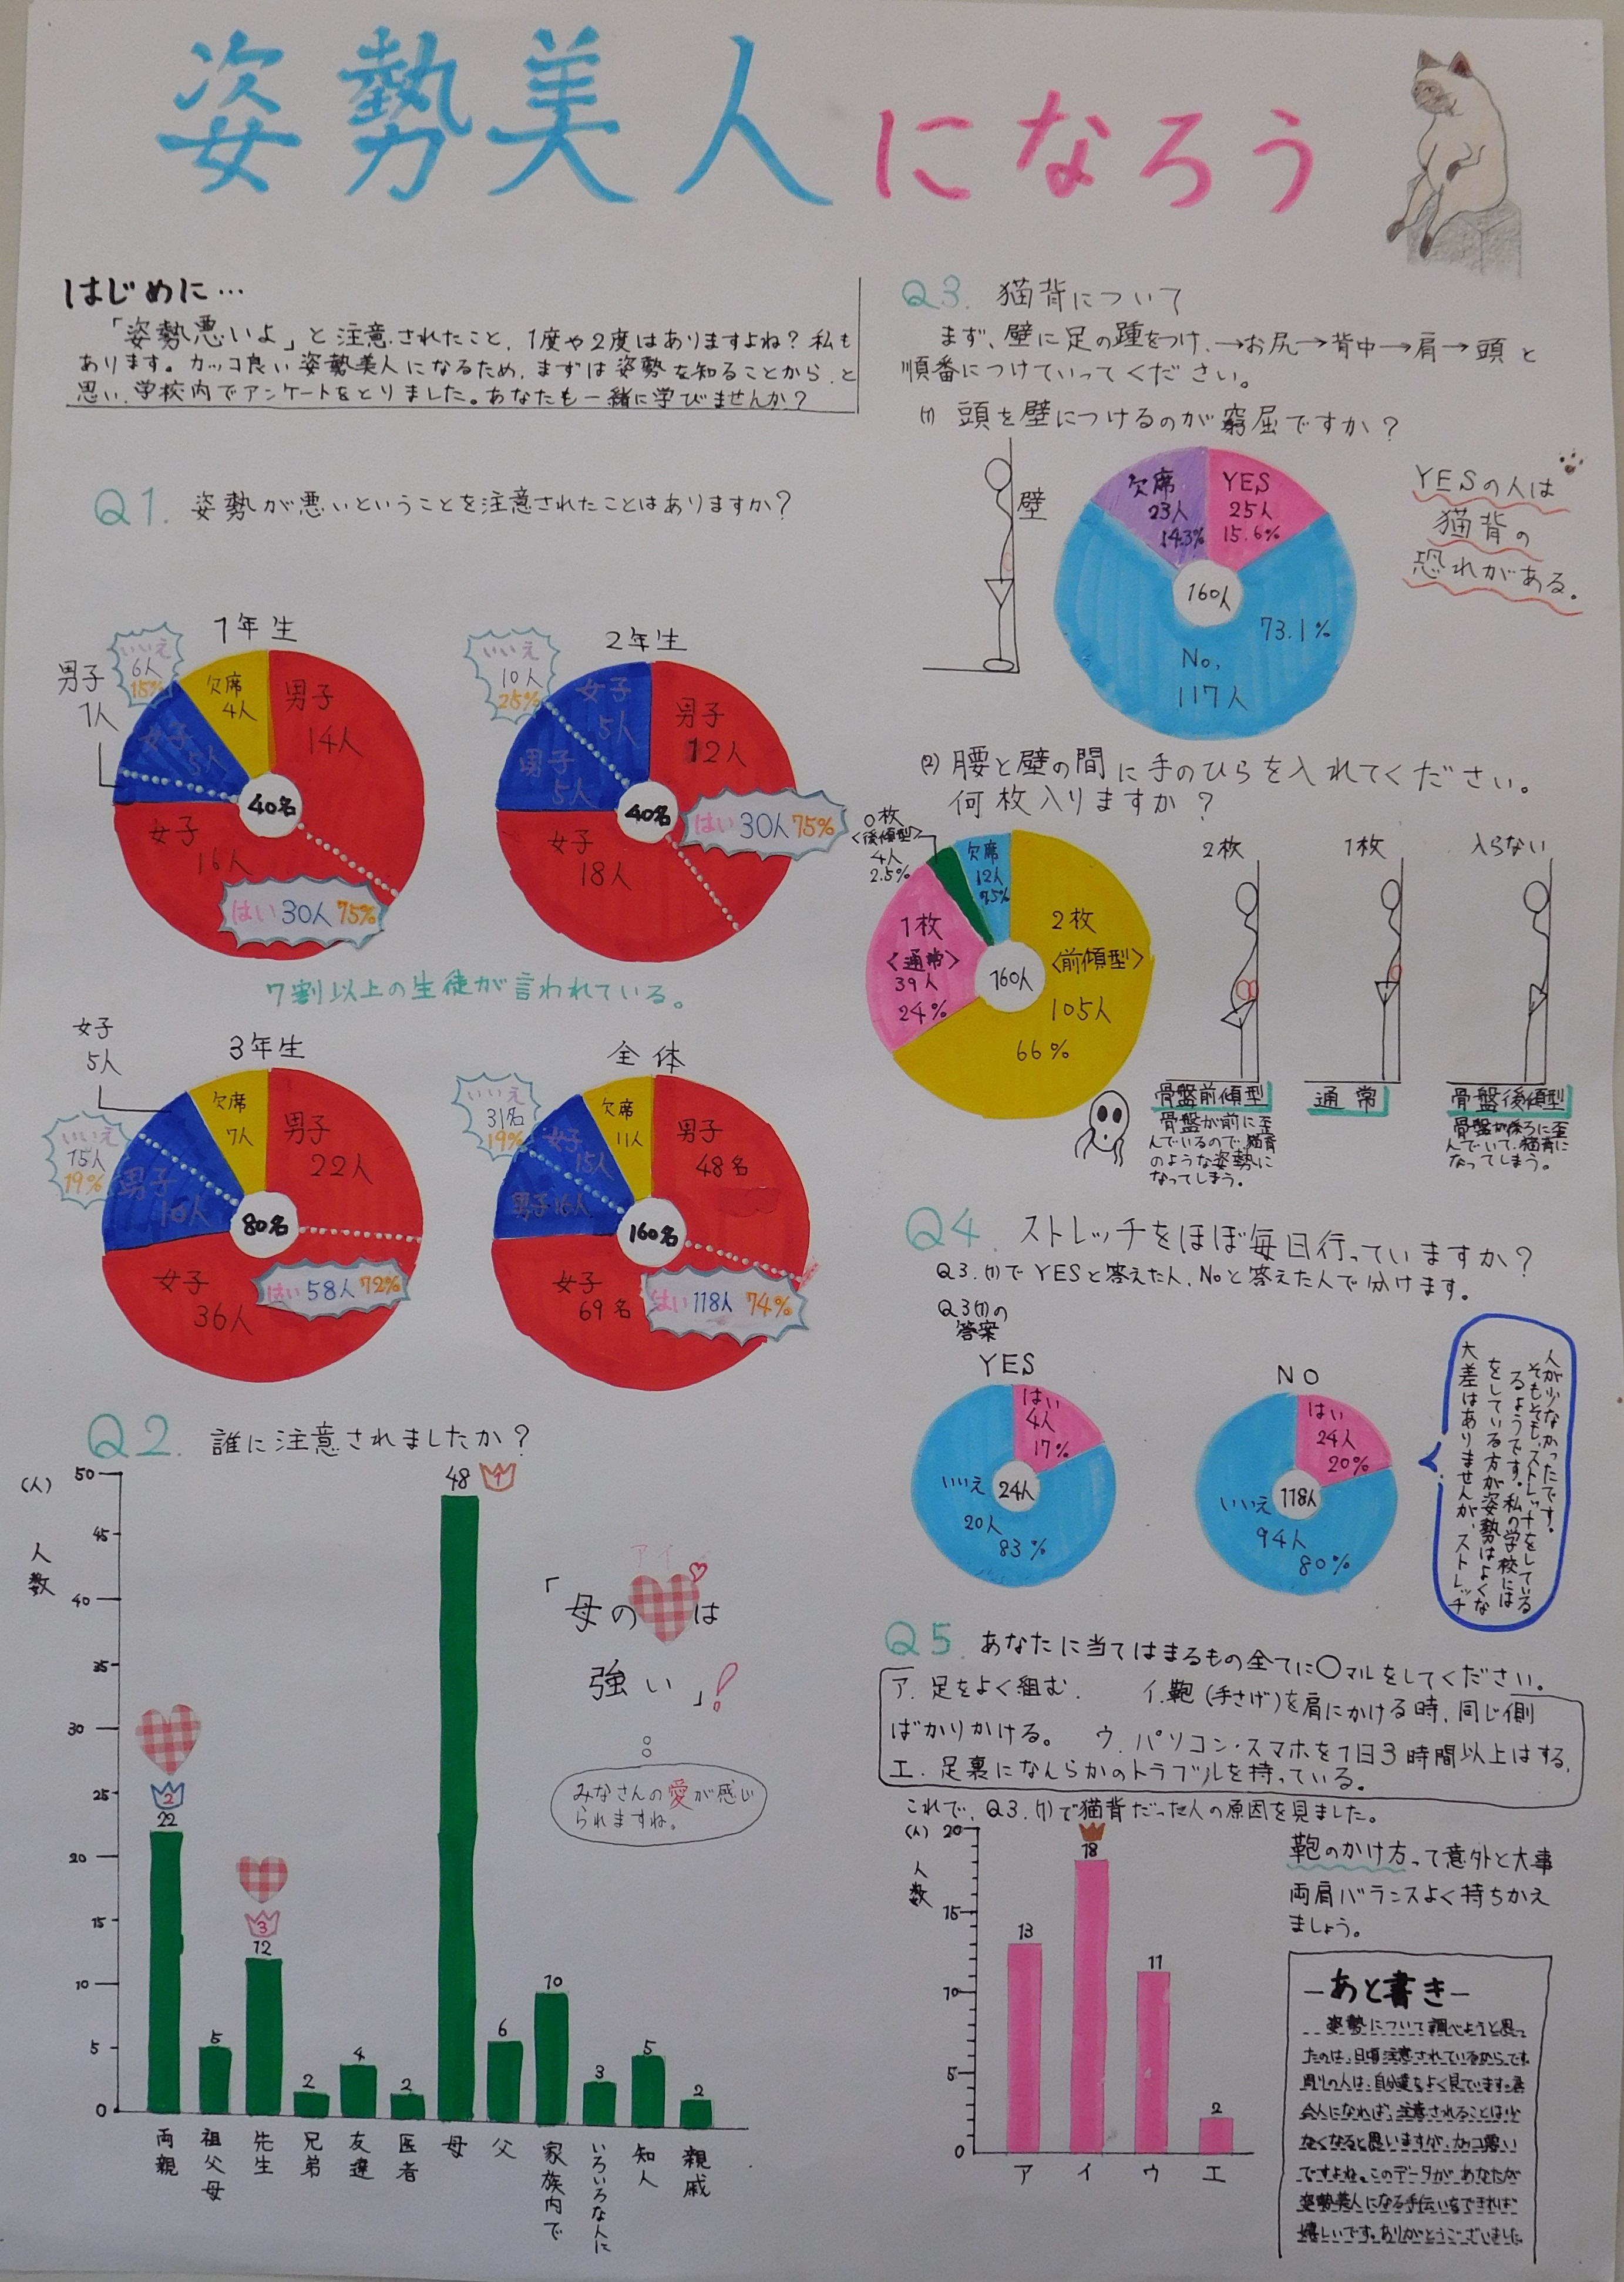 姿勢美人になろう
はじめに…
「姿勢悪いよ」と注意されたこと、1度や2度はありますよね？私も
あります。カッコ良い姿勢美人になるため、まずは姿勢を知ることから、と
思い、学校内でアンケートをとりました。あなたも一緒に学びませんか？
Q1. 姿勢が悪いということを注意されたことはありますか？
1年生
いいえ
6人
15%
男子
1人
女子
5人
欠席
4人
男子
14人
40名
女子
16人
はい 30人 75%
2年生
いいえ
10人
25%
女子
5人
男子
5人
男子
12人
40名
女子
18人
はい 30人 75%
7割以上の生徒が言われている。
3年生
女子
5人
いいえ
15人
19%
男子
10人
欠席
7人
男子
22人
80名
女子
36人
はい 58人 72%
全体
いいえ
31名
19%
女子
15人
男子16人
欠席
11人
男子
48名
160名
女子
69名
はい 118人 74%
Q2. 誰に注意されましたか？
(人)
人数
50
45
40
35
30
25
20
15
10
5
0
2
22
5
3
12
2
4
2
48
1
6
10
3
5
2
両親
祖父母
先生
兄弟
友達
医者
母
父
家族内で
いろいろな人に
知人
親戚
アイ
「母の は
強い」!
みなさんの愛が感じ
られますね。
Q3. 猫背について
まず、壁に足の踵をつけ、→お尻→背中→肩→頭と
順番につけていってください。
(1) 頭を壁につけるのが窮屈ですか？
壁
欠席
23人
14.3%
YES
25人
15.6%
160人
73.1%
No.
117人
YESの人は
猫背の
恐れがある。
(2) 腰と壁の間に手のひらを入れてください。
何枚入りますか？
0枚
<後傾型>
4人
2.5%
欠席
12人
7.5%
1枚
<通常>
39人
24%
160人
2枚
<前傾型>
105人
66%
2枚
1枚
入らない
骨盤前傾型
骨盤が前に歪
んでいるので、猫背
のような姿勢に
なってしまう。
通常
骨盤後傾型
骨盤が後ろに歪
んでいて、猫背に
なってしまう。
Q4. ストレッチをほぼ毎日行っていますか？
Q3.(1)でYESと答えた人、Noと答えた人で分けます。
Q3(1)の
答案
YES
はい
4人
17%
いいえ
24人
20人
83%
NO
はい
24人
20%
いいえ
118人
94人
80%
大差はありませんが、ストレッチ
をしている方が姿勢はよくな
るようです。私の学校には
そもそも、ストレッチをしている
人が少なかったです。
Q5. あなたに当てはまるもの全てに○マルをしてください。
ア. 足をよく組む. イ. 鞄(手さげ)を肩にかける時、同じ側
ばかりかける。 ウ. パソコン・スマホを1日3時間以上はする。
エ. 足裏になんらかのトラブルを持っている。
これで、Q3.(1)で猫背だった人の原因を見ました。
(人)
人数
20
15
10
5
0
13
18
11
2
ア
イ
ウ
エ
鞄のかけ方って意外と大事
両肩バランスよく持ちかえ
ましょう。
-あと書き-
姿勢について調べようと思っ
たのは、日頃注意されているからです
周りの人は、自分達をよく見ています。
会人になれば、注意されることは少
なくなると思いますが、カッコ悪い
ですよね。このデータが、あなたが
姿勢美人になる手伝いをできれば
嬉しいです。ありがとうございました